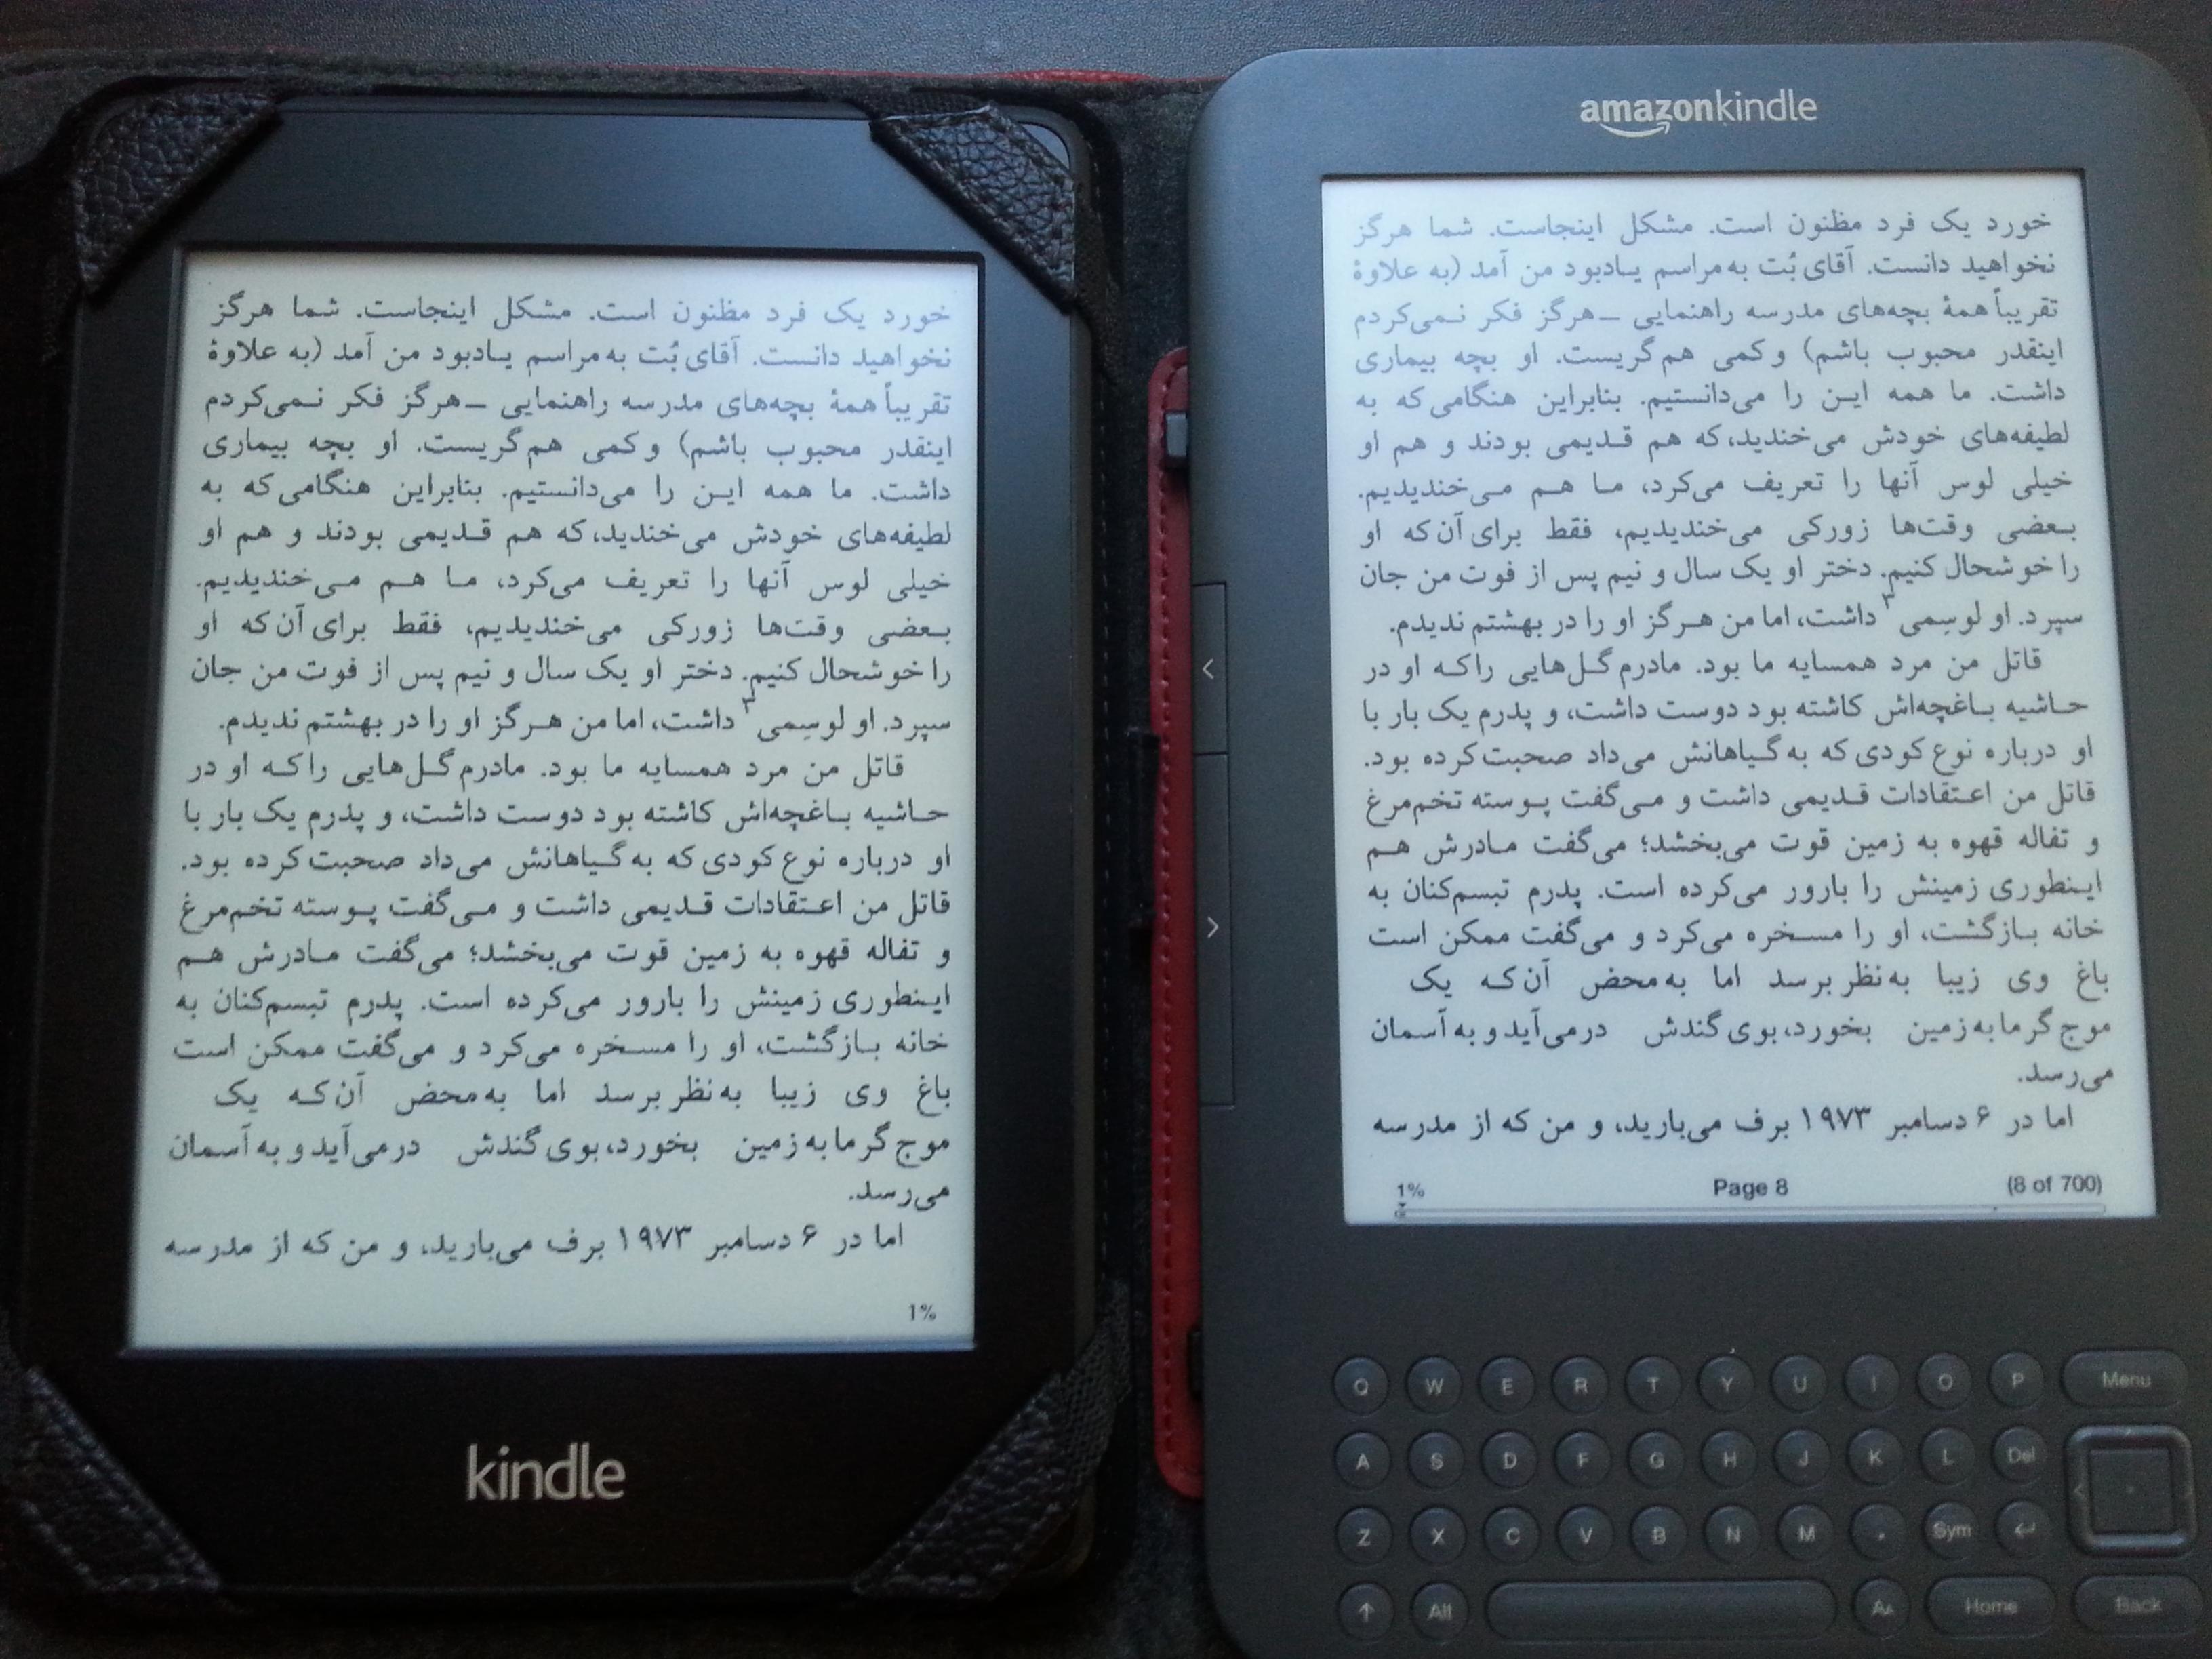 خورد یک فرد مظنون است. مشکل اینجاست. شما هرگز
نخواهید دانست. آقای بُت به مراسم یادبود من آمد (به علاوهٔ
تقریباً همهٔ بچه‌های مدرسه راهنمایی ــ هرگز فکر نمی‌کردم
اینقدر محبوب باشم) و کمی هم گریست. او بچه بیماری
داشت. ما همه این را می‌دانستیم. بنابراین هنگامی که به
لطیفه‌های خودش می‌خندید، که هم قدیمی بودند و هم او
خیلی لوس آنها را تعریف می‌کرد، ما هم می‌خندیدیم.
بعضی وقت‌ها زورکی می‌خندیدیم، فقط برای آن که او
را خوشحال کنیم. دختر او یک سال و نیم پس از فوت من جان
سپرد. او لوسِمی۳ داشت، اما من هرگز او را در بهشتم ندیدم.
قاتل من مرد همسایه ما بود. مادرم گل‌هایی را که او در
حاشیه باغچه‌اش کاشته بود دوست داشت، و پدرم یک بار با
او درباره نوع کودی که به گیاهانش می‌داد صحبت کرده بود.
قاتل من اعتقادات قدیمی داشت و می‌گفت پوسته تخم‌مرغ
و تفاله قهوه به زمین قوت می‌بخشد؛ می‌گفت مادرش هم
اینطوری زمینش را بارور می‌کرده است. پدرم تبسم‌کنان به
خانه بازگشت، او را مسخره می‌کرد و می‌گفت ممکن است
باغ وی زیبا به نظر برسد اما به محض آن که یک
موج گرما به زمین بخورد، بوی گندش درمی‌آید و به آسمان
می‌رسد.
اما در ۶ دسامبر ۱۹۷۳ برف می‌بارید، و من که از مدرسه
1%
kindle
amazonkindle
خورد یک فرد مظنون است. مشکل اینجاست. شما هرگز
نخواهید دانست. آقای بُت به مراسم یادبود من آمد (به علاوهٔ
تقریباً همهٔ بچه‌های مدرسه راهنمایی ــ هرگز فکر نمی‌کردم
اینقدر محبوب باشم) و کمی هم گریست. او بچه بیماری
داشت. ما همه این را می‌دانستیم. بنابراین هنگامی که به
لطیفه‌های خودش می‌خندید، که هم قدیمی بودند و هم او
خیلی لوس آنها را تعریف می‌کرد، ما هم می‌خندیدیم.
بعضی وقت‌ها زورکی می‌خندیدیم، فقط برای آن که او
را خوشحال کنیم. دختر او یک سال و نیم پس از فوت من جان
سپرد. او لوسِمی۳ داشت، اما من هرگز او را در بهشتم ندیدم.
قاتل من مرد همسایه ما بود. مادرم گل‌هایی را که او در
حاشیه باغچه‌اش کاشته بود دوست داشت، و پدرم یک بار با
او درباره نوع کودی که به گیاهانش می‌داد صحبت کرده بود.
قاتل من اعتقادات قدیمی داشت و می‌گفت پوسته تخم‌مرغ
و تفاله قهوه به زمین قوت می‌بخشد؛ می‌گفت مادرش هم
اینطوری زمینش را بارور می‌کرده است. پدرم تبسم‌کنان به
خانه بازگشت، او را مسخره می‌کرد و می‌گفت ممکن است
باغ وی زیبا به نظر برسد اما به محض آن که یک
موج گرما به زمین بخورد، بوی گندش درمی‌آید و به آسمان
می‌رسد.
اما در ۶ دسامبر ۱۹۷۳ برف می‌بارید، و من که از مدرسه
1% Page 8 (8 of 700)
Q W E R T Y U I O P Menu
A S D F G H J K L Del
Z X C V B N M . Sym
Alt Aa Home Back